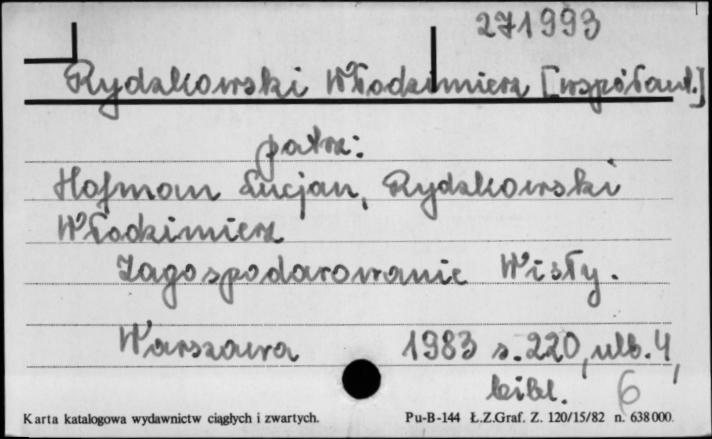 271993
Rydzkowski Włodzimierz [współaut.]
patrz:
Hofman Lucjan, Rydzkowski
Włodzimierz
Zagospodarowanie Wisły.
Warszawa 1983 s. 220, ulb. 4,
bibl. 6
Karta katalogowa wydawnictw ciągłych i zwartych. Pu-B-144 Ł.Z.Graf. Z. 120/15/82 n. 638000.